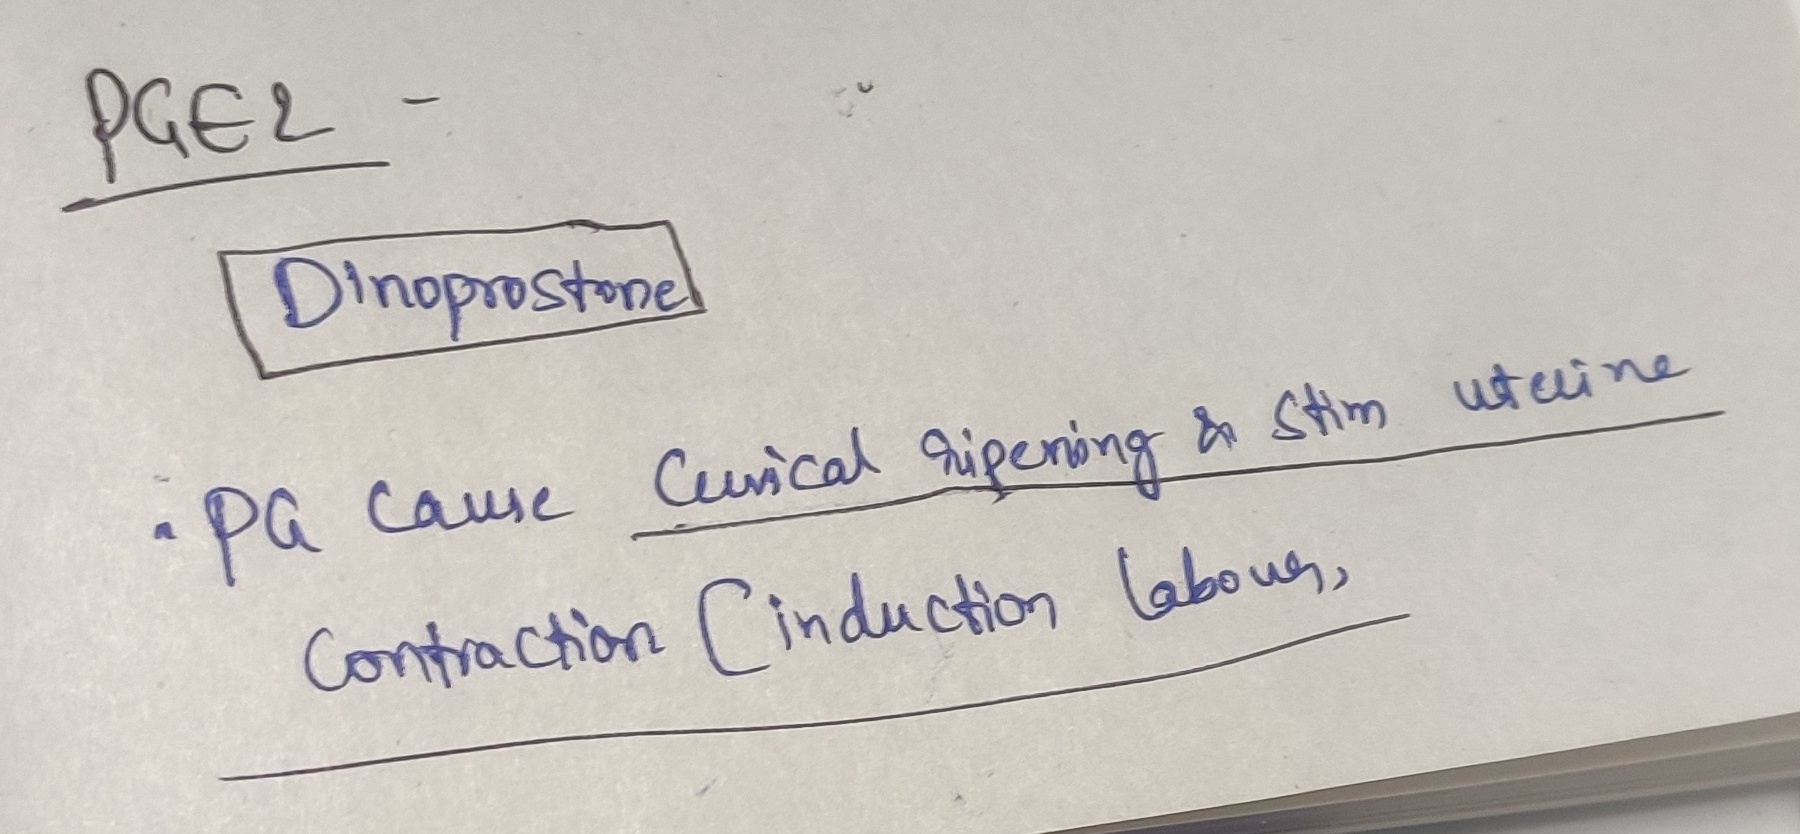 PGE2 -
Dinoprostone
. PG cause Cervical ripening & Stim uterine
Contraction (induction labour,